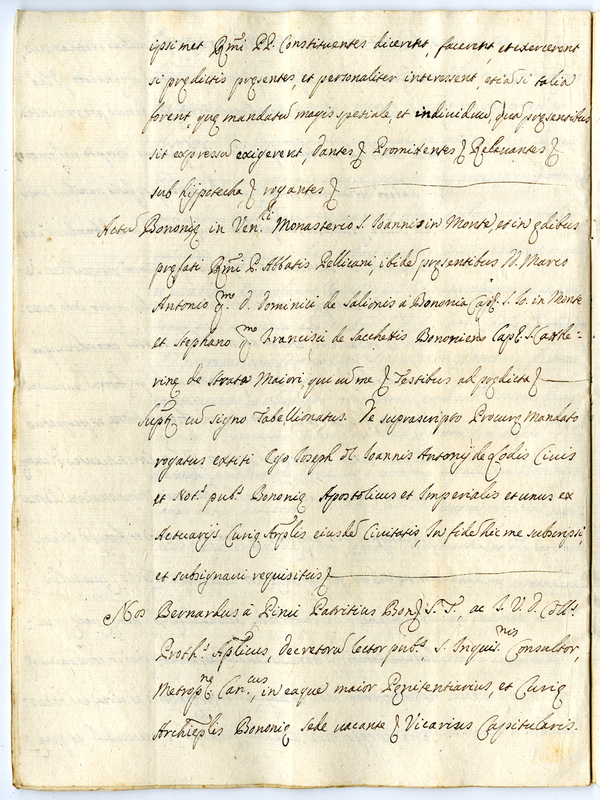 ipsimet Rmi PP. Constituentes dicerent, facerent, et exercerent
si prędictis pręsentes, et personaliter interessent, etiā si talia
forent, quę mandatū magis spetiale, et individuū, quā pręsentibus
sit expressū exigerent, dantes Promittentes Relevantes
sub hÿpotecha rogantes
Actū Bononię in Ven.li Monasterio S. Ioannis in Monte, et in ędibus
pręfati Rmi P. Abbatis Pellicani, ibidē pręsentibus D. Marco
Antonio qmo D. Dominici de Salionis a Bononia Cap. S. Io. in Monte
et Stephano qmo Francisci de Sacchettis Bononiens Cap. S. Catte-
rinę de Strata Maiori, qui cū me Testibus ad prędicta
Supt. cū signo Tabellionatus. De suprascripto Procurę Mandato
rogatus extiti Ego Ioseph D. Ioannis Antonÿ de Civis
et Not.s pub.s Bononię Apostolicus et Imperialis et unus ex
Actuarÿs Curię Arplis eiusdē Civitatis, In fidē hic me subscripsi,
et subsignavi requisitus
Nos Bernardus a Pinu Patritius Bon. S. T., ac I. V. D. Coll.s
Proth.s Aplicus, decretorū lector pub.s, S. Inquis.nis Consultor,
Metropnę Can.cus, in eaque maior Pęnitentiarius, et Curię
Archieplis Bononię sede vacante Vicarius Capitularis.